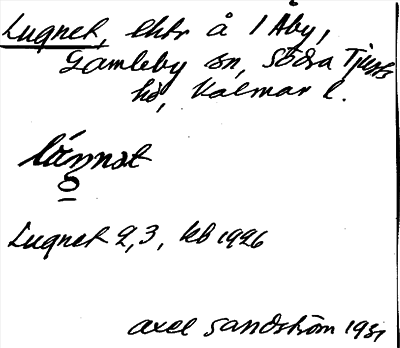 Lugnet, lht å 1 Åby,
Gamleby sn, Södra Tjusts
hd, Kalmar l.
lúŋnət
o
Lugnet 2,3, kb 1926
Axel Sandström 1931